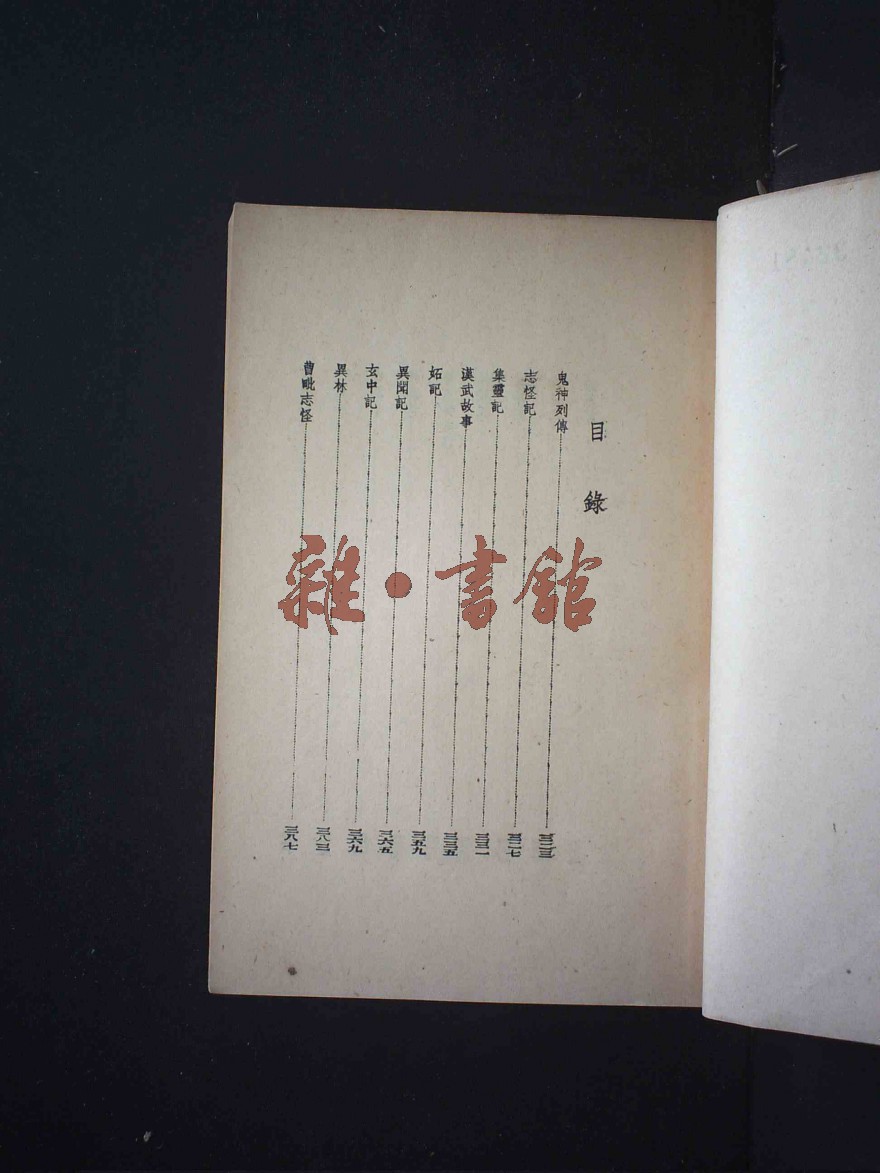 目錄
鬼神列傳 三二三
志怪記 三二七
集靈記 三三一
漢武故事 三三五
妬記 三五九
異聞記 三六五
玄中記 三六九
異林 三八三
曹毗志怪 三八七
雜·書館